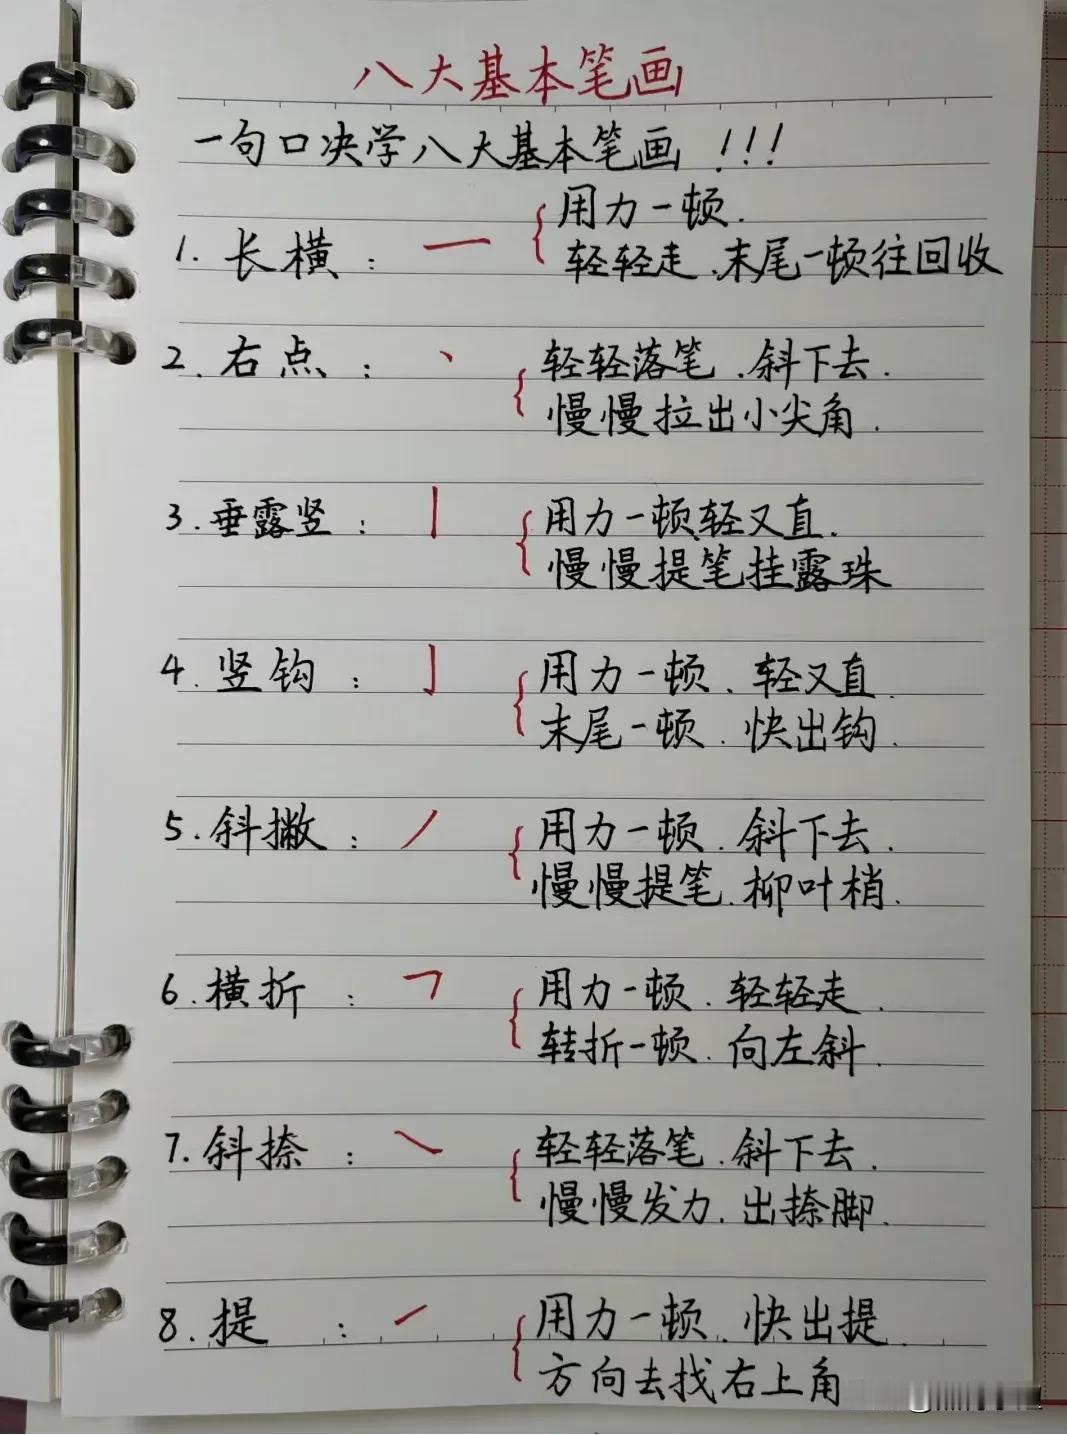 八大基本笔画
一句口决学八大基本笔画 !!!
1. 长横： 一 { 用力一顿.
轻轻走.末尾一顿往回收
2. 右点： 、 { 轻轻落笔.斜下去.
慢慢拉出小尖角.
3. 垂露竖： 丨 { 用力一顿.轻又直.
慢慢提笔挂露珠
4. 竖钩： 亅 { 用力一顿.轻又直
末尾一顿.快出钩.
5. 斜撇： ㇒ { 用力一顿.斜下去.
慢慢提笔.柳叶梢.
6. 横折： ㇕ { 用力一顿.轻轻走.
转折一顿.向左斜.
7. 斜捺： ㇏ { 轻轻落笔.斜下去.
慢慢发力.出捺脚.
8. 提： ㇀ { 用力一顿.快出提.
方向去找右上角